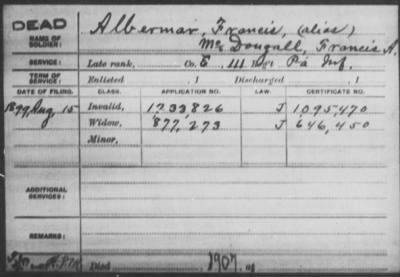 DEAD
NAME OF SOLDIER: Albermar, Francis, (alias)
Mc Dougall, Francis A.
SERVICE: Late rank, Co. E, 111 Reg't Pa Inf.
TERM OF SERVICE: Enlisted , 1 Discharged , 1
DATE OF FILING. CLASS. APPLICATION NO. LAW. CERTIFICATE NO.
1899 Aug. 15 Invalid, 1,233,826 J 1,095,470
Widow, 877,273 J 646,450
Minor,
ADDITIONAL SERVICES:
REMARKS:
Died 1907, at